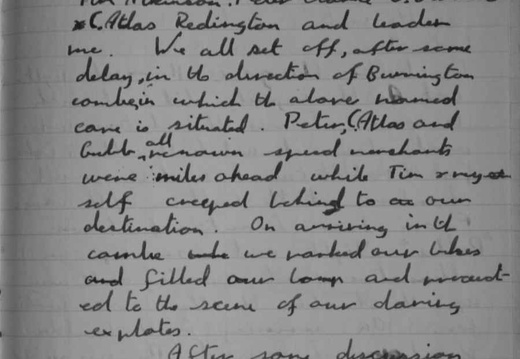 Tim Atkinson, Peter
x C. Atlas Redington and leader
me. We all set off, after some
delay, in the direction of Burrington
combe, in which the above named
cave is situated. Peter, C. Atlas and
Gubb, all renown speed merchants
were miles ahead while Tim & my
self creeped behind to our
destination. On arriving in th
combe we parked our bikes
and filled our lamp and proceed-
ed to the scene of our daring
explotes.
After some discussion